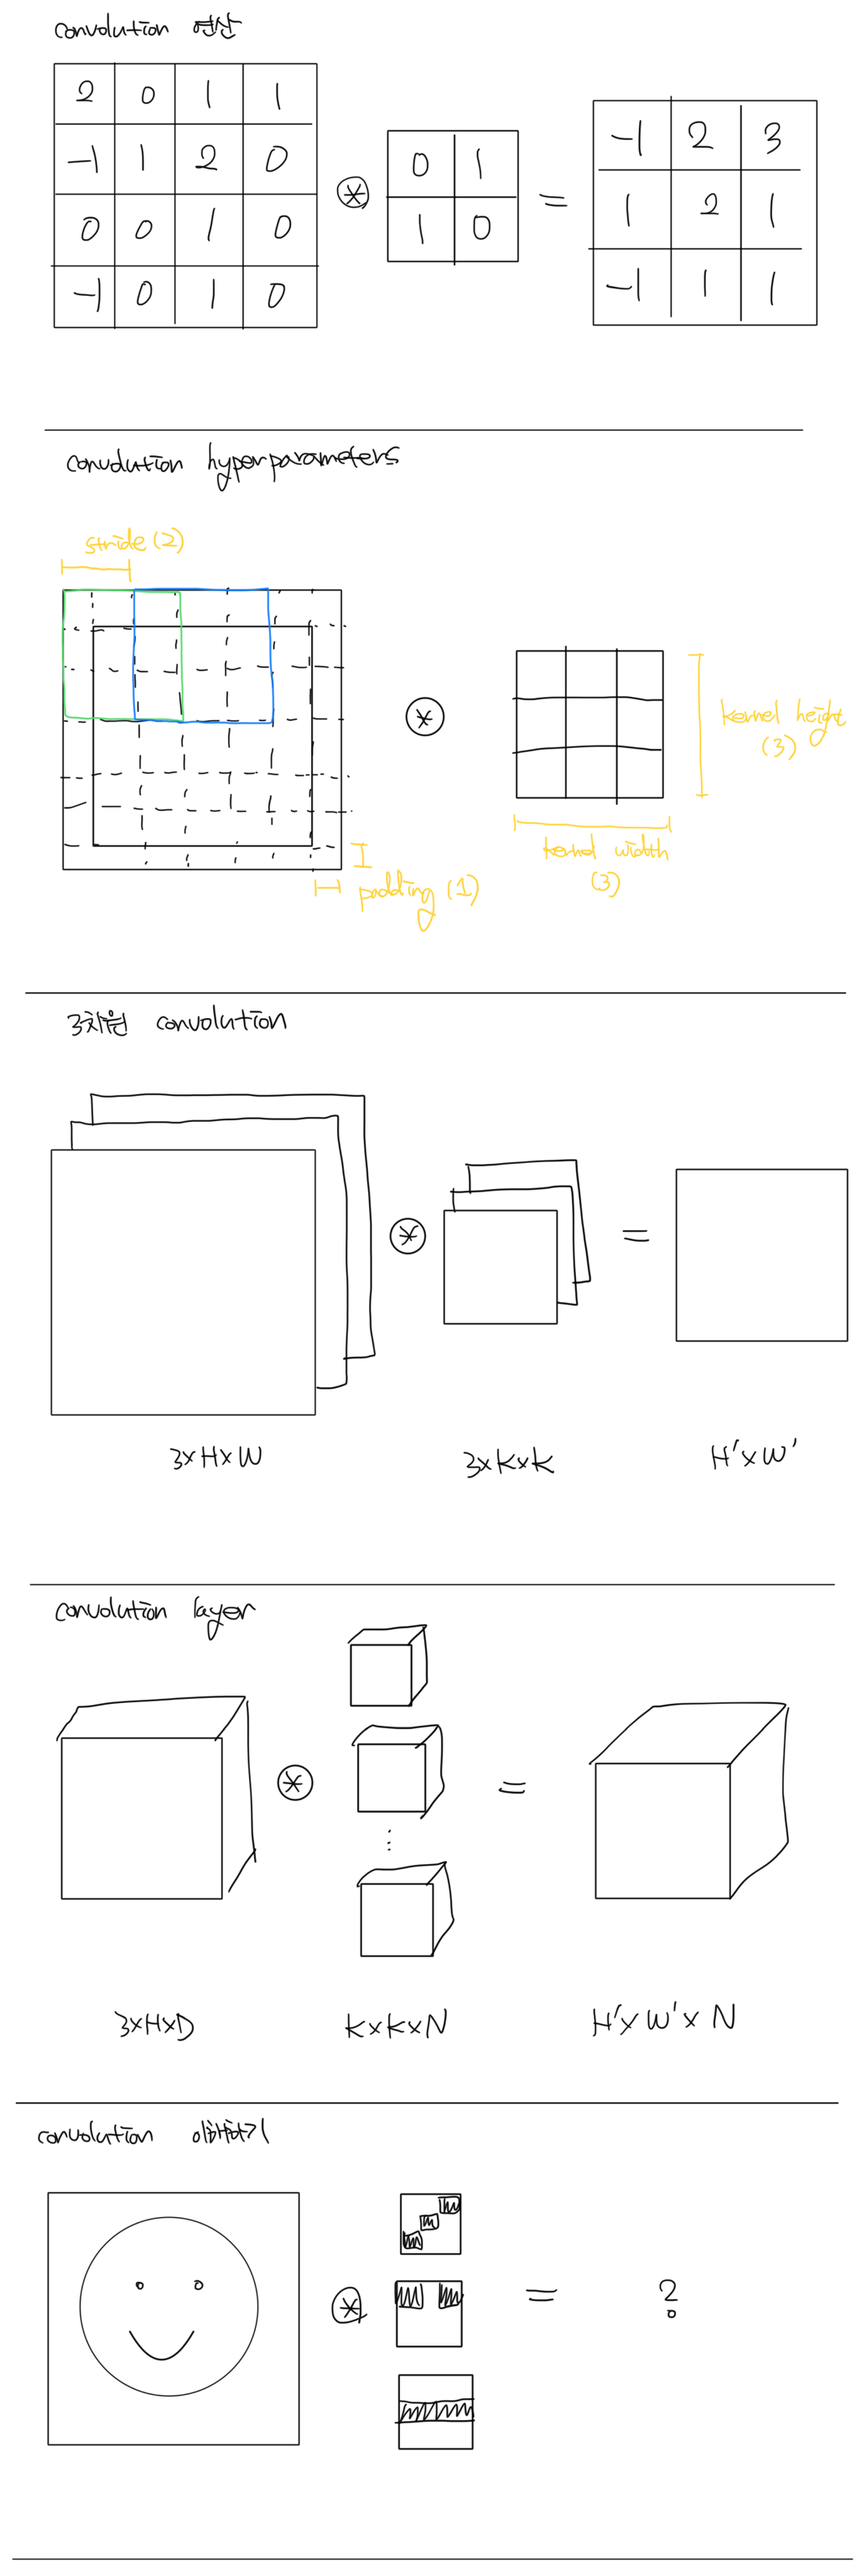 convolution 연산
2 0 1 1
-1 1 2 0
0 0 1 0
-1 0 1 0
⊛
0 1
1 0
=
-1 2 3
1 2 1
-1 1 1
convolution hyperparameters
stride (2)
⊛
kernel height
(3)
kernel width
(3)
padding (1)
3차원 convolution
⊛
=
3×H×W
3×K×K
H'×W'
convolution layer
⊛
⋮
=
3×H×D
K×K×N
H'×W'×N
convolution 이해하기
⊛
=
?